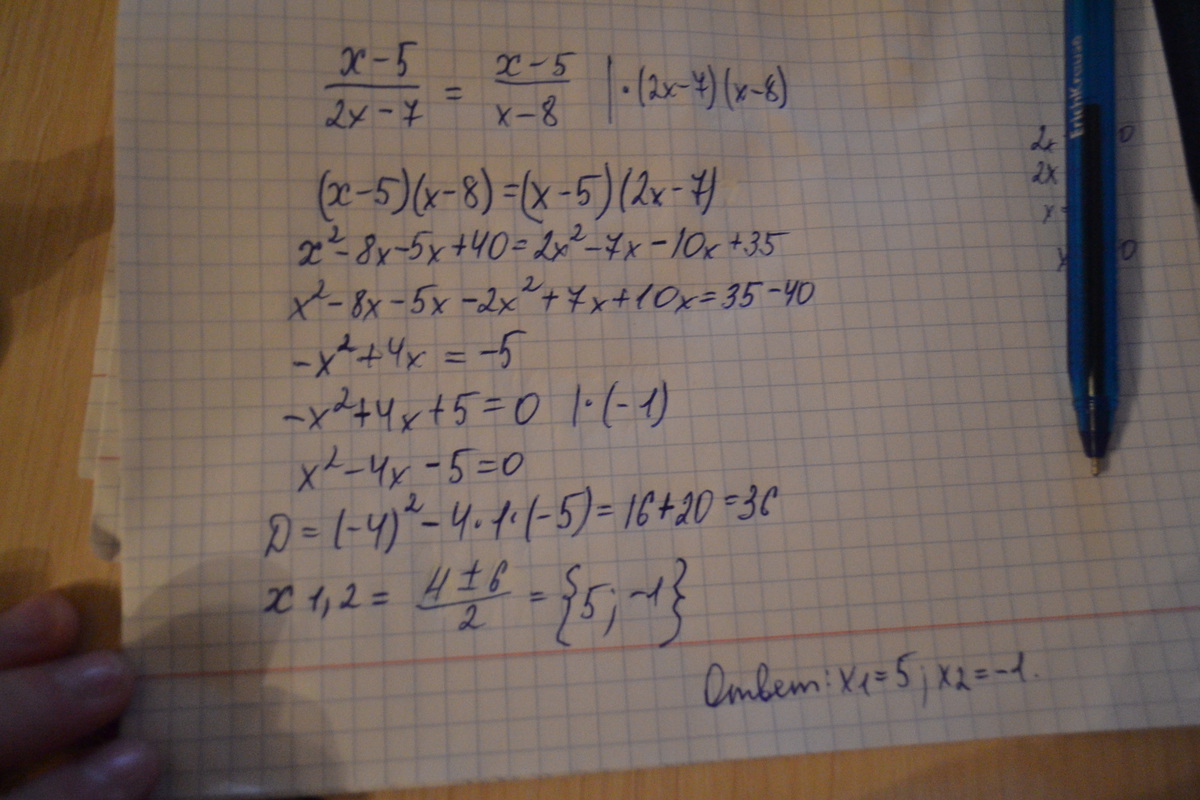 x-5/2x-7 = x-5/x-8 |·(2x-7)(x-8)
(x-5)(x-8)=(x-5)(2x-7)
x²-8x-5x+40=2x²-7x-10x+35
x²-8x-5x-2x²+7x+10x=35-40
-x²+4x=-5
-x²+4x+5=0 |·(-1)
x²-4x-5=0
D=(-4)²-4·1·(-5)=16+20=36
x1,2=4±6/2={5;-1}
Ответ: x1=5; x2=-1.
ErichKrause
2x 0
2x
x-
0